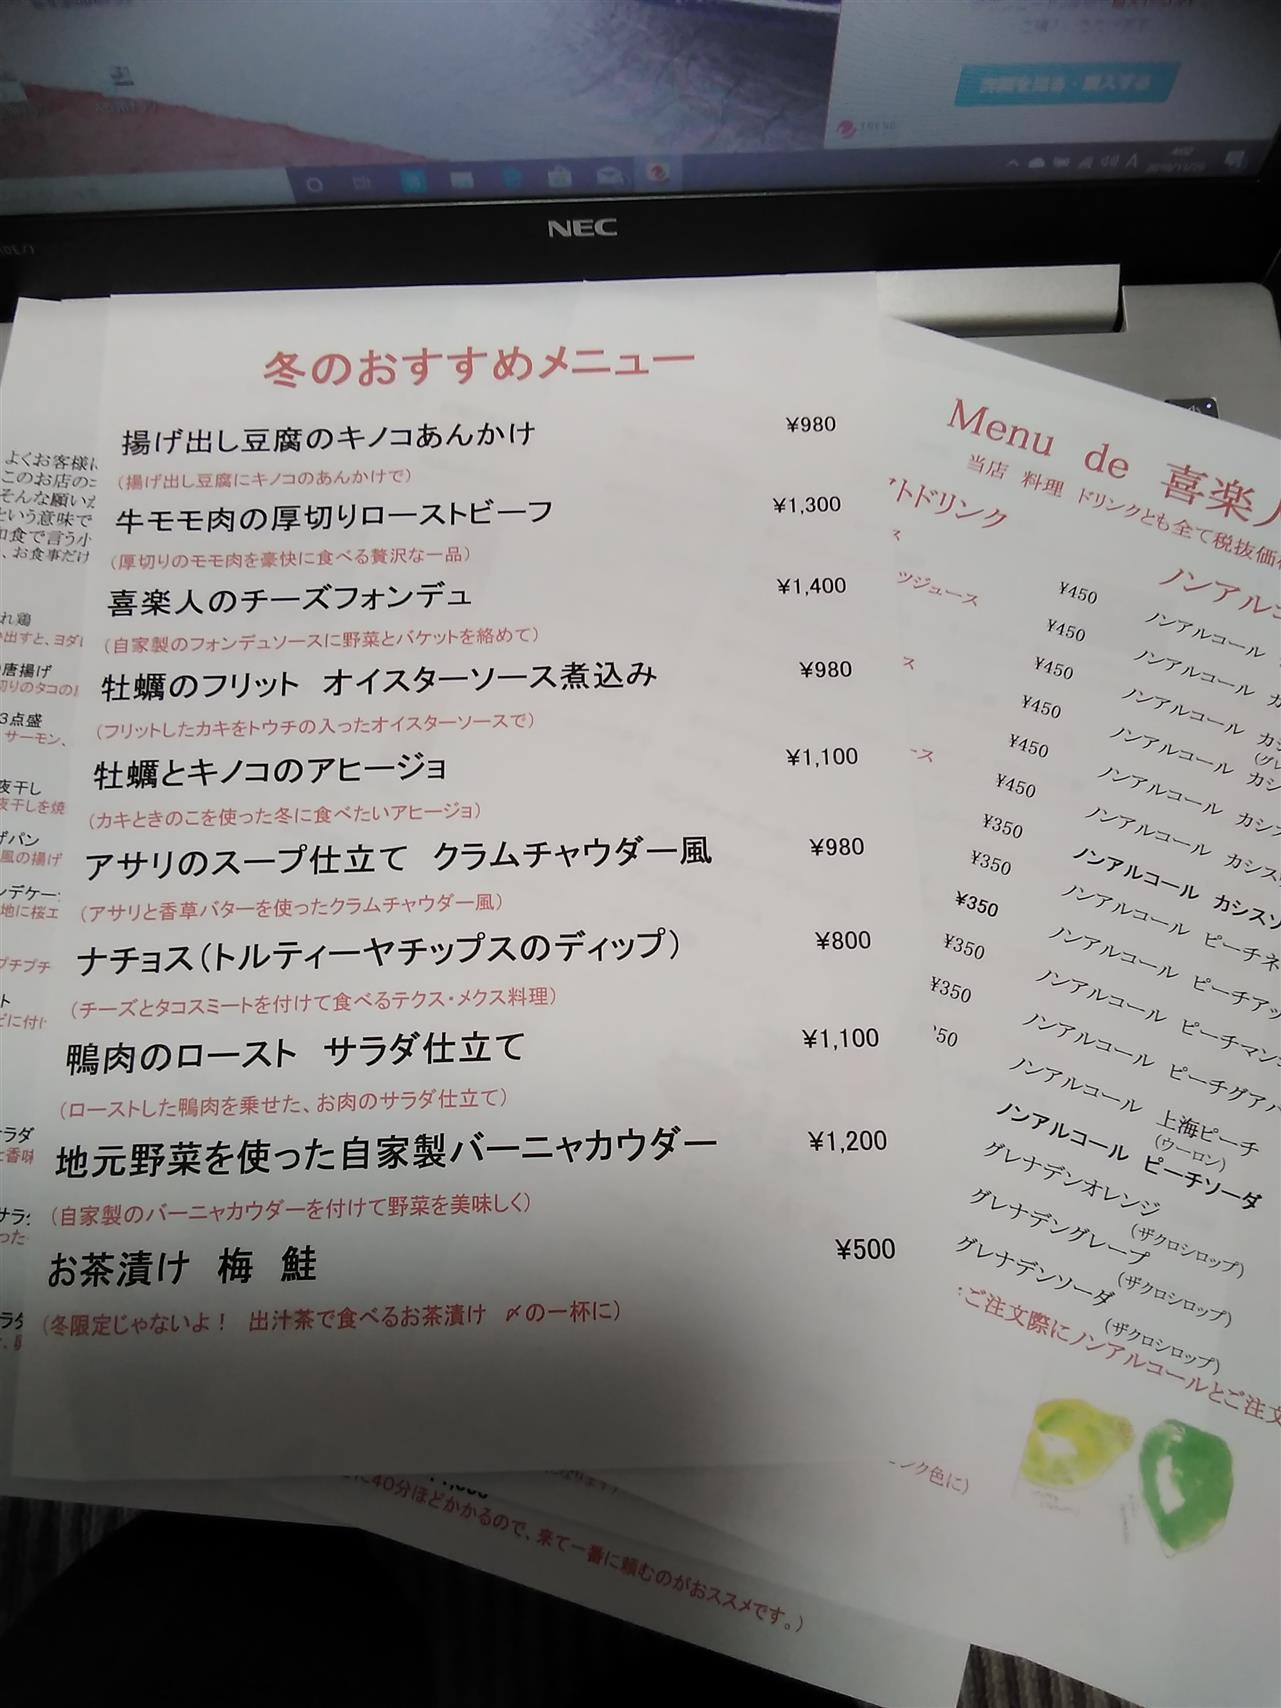 NEC
冬のおすすめメニュー
揚げ出し豆腐のキノコあんかけ ¥980
(揚げ出し豆腐にキノコのあんかけで)
牛モモ肉の厚切りローストビーフ ¥1,300
(厚切りのモモ肉を豪快に食べる贅沢な一品)
喜楽人のチーズフォンデュ ¥1,400
(自家製のフォンデュソースに野菜とバケットを絡めて)
牡蠣のフリット オイスターソース煮込み ¥980
(フリットしたカキをトウチの入ったオイスターソースで)
牡蠣とキノコのアヒージョ ¥1,100
(カキときのこを使った冬に食べたいアヒージョ)
アサリのスープ仕立て クラムチャウダー風 ¥980
(アサリと香草バターを使ったクラムチャウダー風)
ナチョス(トルティーヤチップスのディップ) ¥800
(チーズとタコスミートを付けて食べるテクス・メクス料理)
鴨肉のロースト サラダ仕立て ¥1,100
(ローストした鴨肉を乗せた、お肉のサラダ仕立て)
地元野菜を使った自家製バーニャカウダー ¥1,200
(自家製のバーニャカウダーを付けて野菜を美味しく)
お茶漬け 梅 鮭 ¥500
(冬限定じゃないよ! 出汁茶で食べるお茶漬け 〆の一杯に)
よくお客様に
このお店の
そんな願いが
という意味で
和食で言う小
、お食事だけ
れ鶏
唐揚げ
切りのタコの
3点盛
サーモン、
夜干し
夜干しを焼
げパン
風の揚げ
ンデケー
地に桜エ
プチプチ
ト
ラダ
Menu de 喜楽
当店 料理 ドリンクとも全て税抜価
トドリンク
ノンアルコ
ス
ツジュース
ス
ース
¥450
¥450
¥450
¥450
¥450
¥450
¥350
¥350
¥350
¥350
¥350
50
ノンアルコール
ノンアルコール カ
ノンアルコール カシ
ノンアルコール カシ
ノンアルコール カシス
ノンアルコール カシス
ノンアルコール カシスソ
ノンアルコール ピーチネ
ノンアルコール ピーチアッ
ノンアルコール ピーチマン
ノンアルコール ピーチグアバ
ノンアルコール 上海ピーチ
(ウーロン)
ノンアルコール ピーチソーダ
グレナデンオレンジ
(ザクロシロップ)
グレナデングレープ
(ザクロシロップ)
グレナデンソーダ
(ザクロシロップ)
ご注文際にノンアルコールとご注文
ンク色に)
に40分ほどかかるので、来て一番に頼むのがおススメです。)